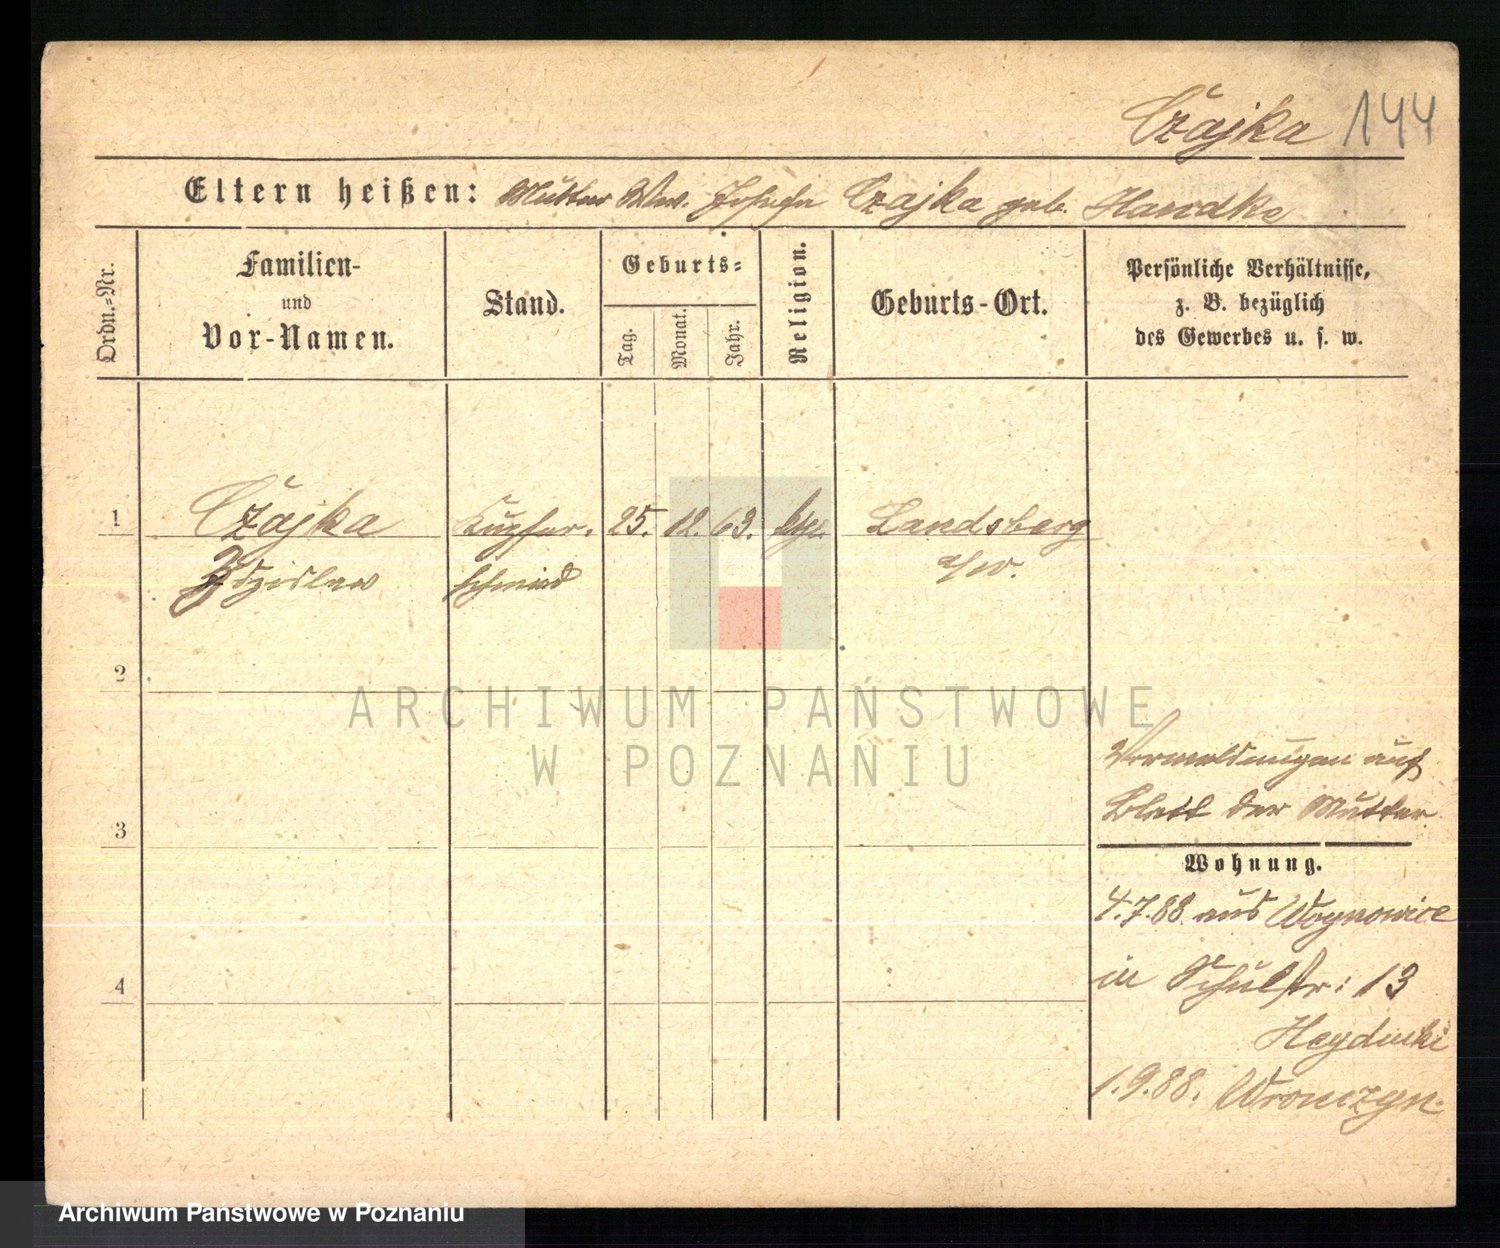 Czajka 144
Eltern heißen: Mutter Ww. Josepha Czajka geb. Handke
Ordn.-Nr.
Familien-
und
Vor-Namen.
Stand.
Geburts-
Tag.
Monat.
Jahr.
Religion.
Geburts-Ort.
Persönliche Verhältnisse,
z. B. bezüglich
des Gewerbes u. s. w.
1 Czajka Kupfer- 25. 12. 63. kth. Landsberg
Zdzislaw schmied a/W.
2
ARCHIWUM PAŃSTWOWE
W POZNANIU
Vermeldungen auf
Blatt der Mutter
3
Wohnung.
4.7.88 aus Woynowice
4
in Schulstr: 13
Heyducki
1.9.88. Wronczyn
Archiwum Państwowe w Poznaniu